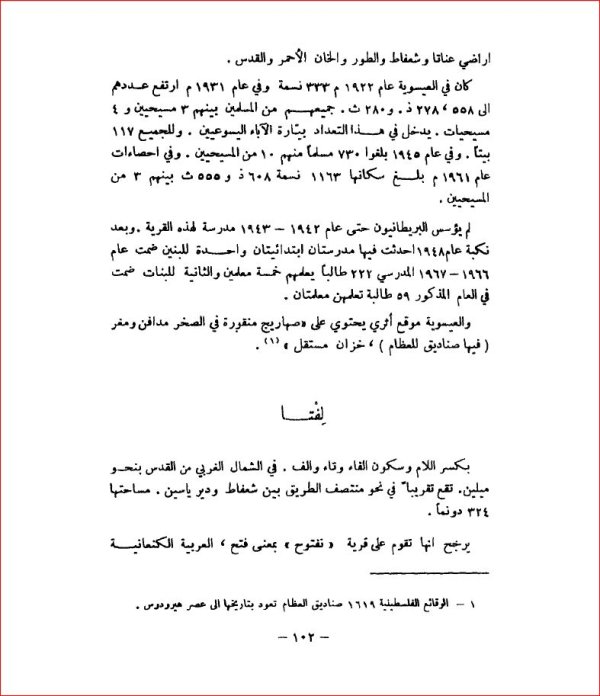 اراضي عناتا وشعفاط والطور والخان الأحمر والقدس .
كان في العيسوية عام ١٩٢٢ م ٣٣٣ نسمة وفي عام ١٩٣١ م ارتفع عددهم
الى ٥٥٨ ، ٢٧٨ ذ . و ٢٨٠ ث . جميعهم من المسلمين بينهم ٣ مسيحيين و ٤
مسيحيات . يدخل في هذا التعداد بيتارة الآباء اليسوعيين . وللجميع ١١٧
بيتاً . وفي عام ١٩٤٥ بلغوا ٧٣٠ مسلماً منهم ١٠ من المسيحيين . وفي احصاءات
عام ١٩٦١ م بلغ سكانها ١١٦٣ نسمة ٦٠٨ ذ و ٥٥٥ ث بينهم ٣ من
المسيحيين .
لم يؤسس البريطانيون حتى عام ١٩٤٢ – ١٩٤٣ مدرسة لهذه القرية . وبعد
نكبة عام ١٩٤٨ احدثت فيها مدرستان ابتدائيتان واحدة للبنين ضمت عام
١٩٦٦ – ١٩٦٧ المدرسي ٢٢٢ طالباً يعلمهم خمسة معلمين والثانية للبنات ضمت
في العام المذكور ٥٩ طالبة تعلمهن معلمتان .
والعيسوية موقع أثري يحتوي على « صهاريج منقورة في الصخر مدافن ومغر
( فيها صناديق للعظام ) ، خزان مستقل » (١) .
لِفْتا
بكسر اللام وسكون الفاء وتاء والف . في الشمال الغربي من القدس بنحو
ميلين . تقع تقريباً في نحو منتصف الطريق بين شعفاط ودير ياسين . مساحتها
٣٢٤ دونماً .
يرجح انها تقوم على قرية « نفتوح » بمعنى فتح ، العربية الكنعانية
١ – الوقائع الفلسطينية ١٦١٩ صناديق العظام تعود بتاريخها الى عصر هيرودوس .
– ١٠٢ –